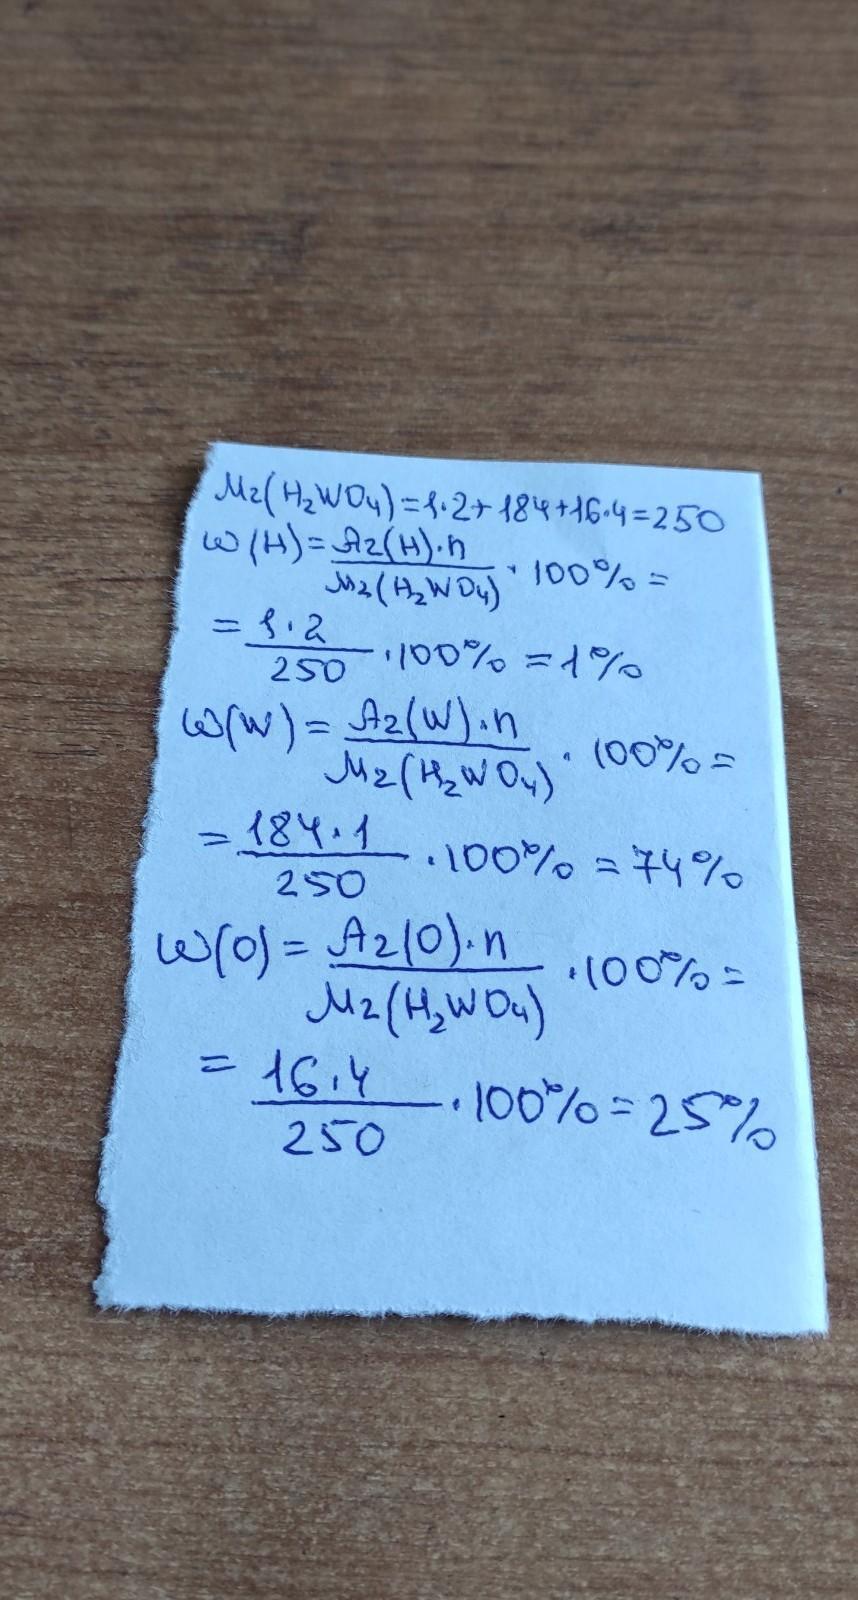 Mr(H₂WO₄)=1·2+184+16·4=250
ω(H)=Ar(H)·n/Mr(H₂WO₄)·100%=
=1·2/250·100%=1%
ω(W)=Ar(W)·n/Mr(H₂WO₄)·100%=
=184·1/250·100%=74%
ω(O)=Ar(O)·n/Mr(H₂WO₄)·100%=
=16·4/250·100%=25%